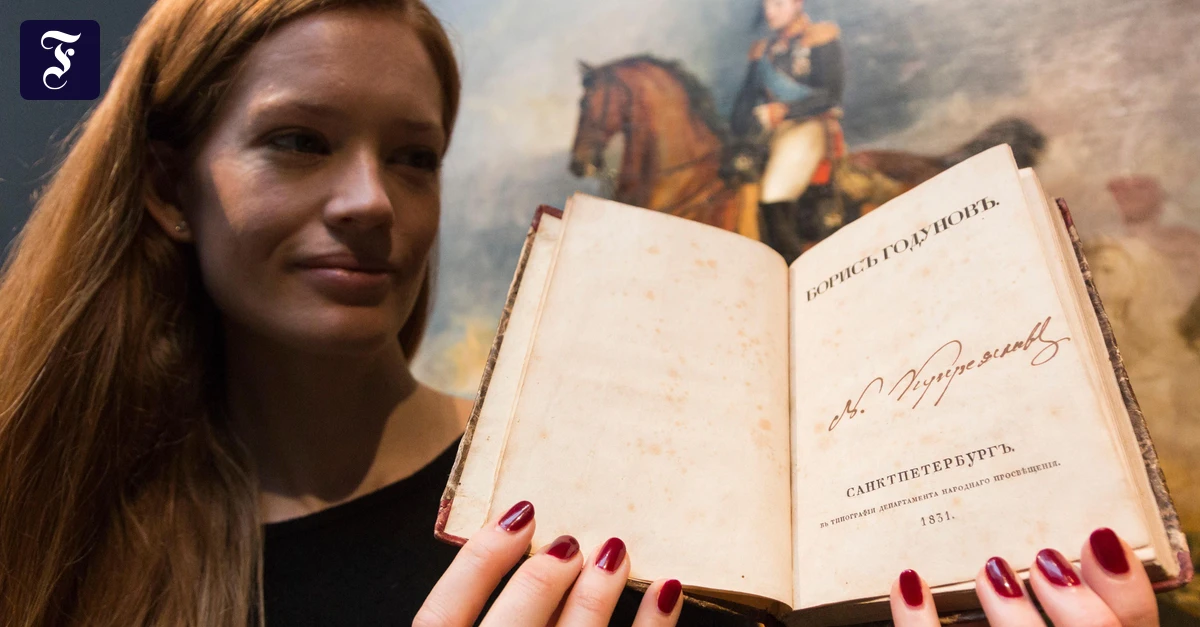 БОРИСЪ ГОДУНОВЪ.
САНКТПЕТЕРБУРГЪ.
ВЪ ТИПОГРАФІИ ДЕПАРТАМЕНТА НАРОДНАГО ПРОСВѢЩЕНІЯ.
1831.